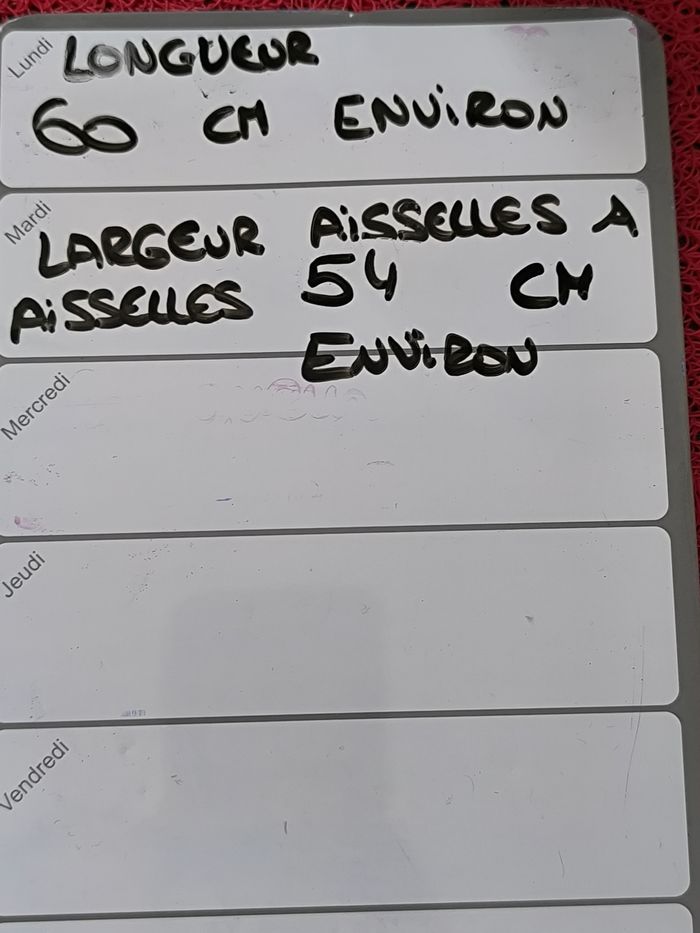 Lundi
LONGUEUR
60 CM ENViRON
Mardi
LARGEUR AiSSELLES A
AiSSELLES 54 CM
ENViRON
Mercredi
Jeudi
Vendredi